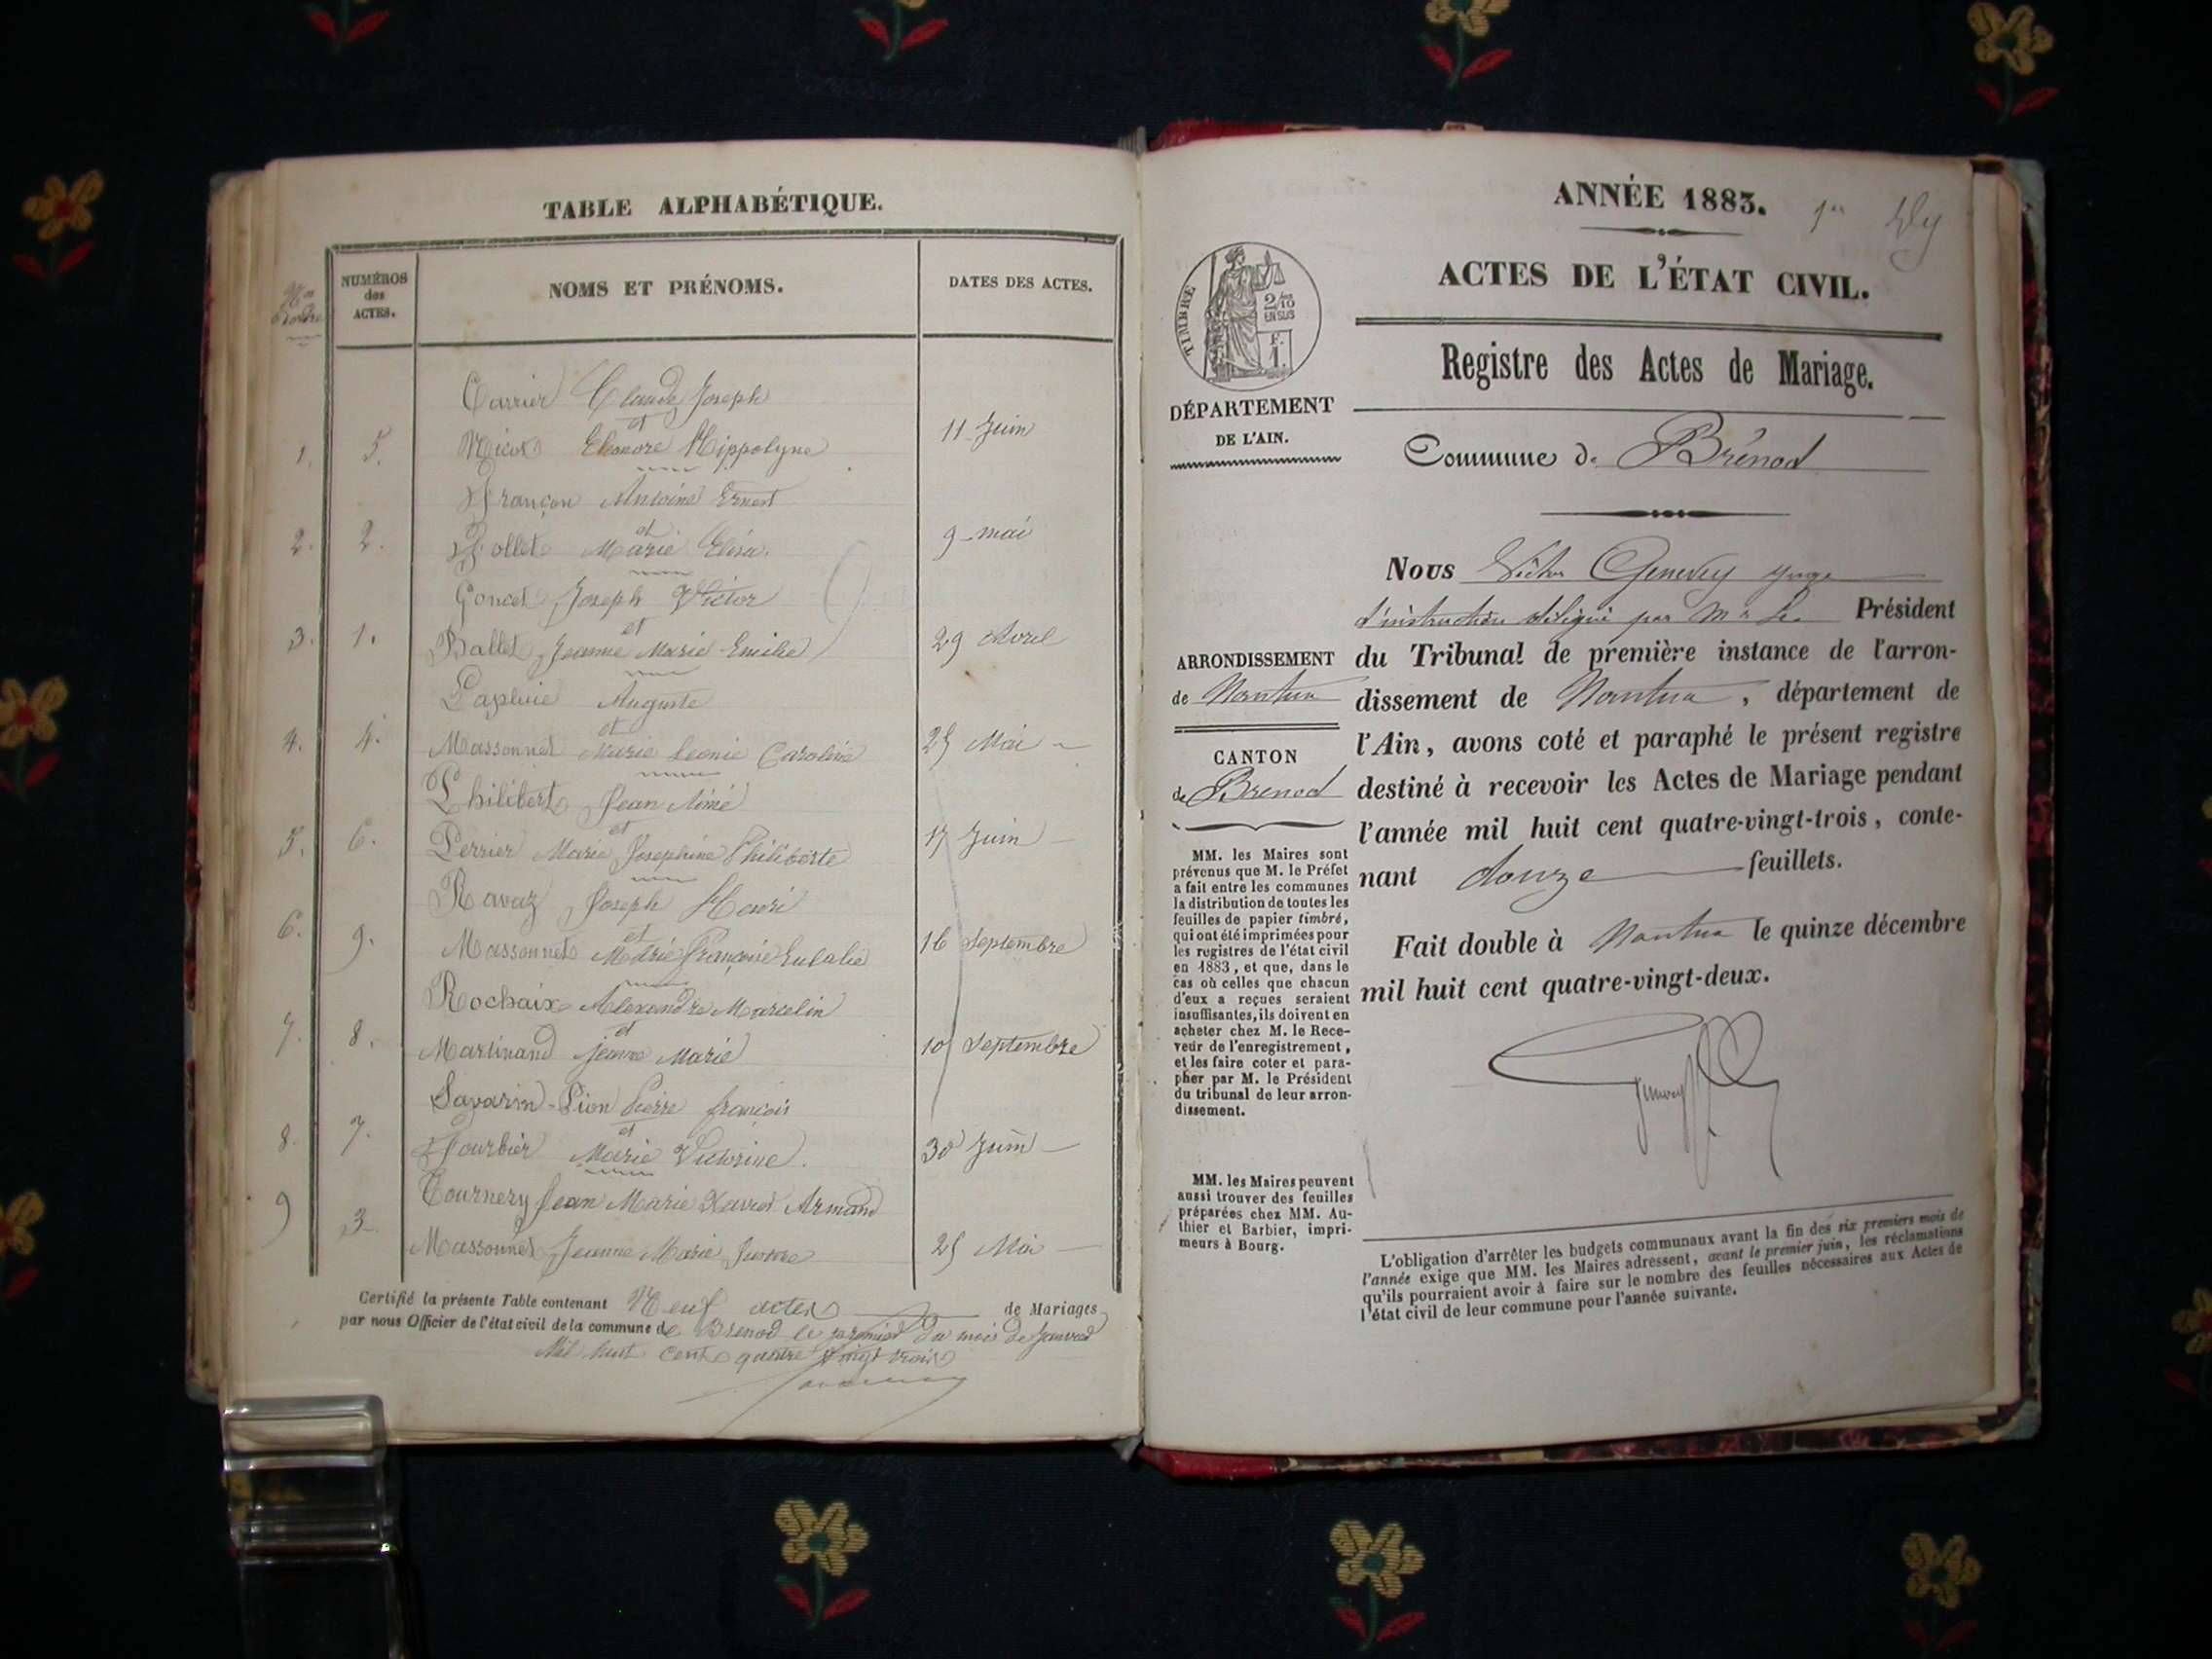 TABLE ALPHABÉTIQUE.
Nos
d'ordre
NUMÉROS
des
ACTES.
NOMS ET PRÉNOMS.
DATES DES ACTES.
Carrier Claude Joseph
et
1. 5. Eléonore Hippolyne 11 Juin
Françon Antoine Ernest
et
2. 2. Jollet Marie Elisa. 9 mai
Goncet Joseph Victor
et
3. 1. Ballet Jeanne Marie Emilie 29 Avril
Lapluie Auguste
et
4. 4. Massonnet Marie Leonie Caroline 25 Mai
Philibert Jean Aimé
et
5. 6. Perrier Marie Josephine Philiberte 17 Juin
Ravaz Joseph Henri
et
6. 9. Massonnet Marie Françoise Eulalie 16 Septembre
Rochaix Alexandre Marcelin
et
7. 8. Martinand Jeanne Marie 10 Septembre
Savarin-Pion Pierre françois
et
8. 7. Tourbier Marie Victorine. 30 Juin
Tournery Jean Marie Xavier Armand
9 3 Massonnet Jeanne Marie 25 Mai
Certifié la présente Table contenant Neuf actes de Mariages
par nous Officier de l'état civil de la commune de Brenod le premier du mois de Janvier
Mil huit cent quatre vingt trois
ANNÉE 1883.
1er
ACTES DE L'ÉTAT CIVIL.
TIMBRE
2/10
EN SUS
F.
1.
Registre des Actes de Mariage.
DÉPARTEMENT
DE L'AIN.
Commune de Brénod
Nous Victor Genevey juge
d'instruction délégué par Mr Le Président
du Tribunal de première instance de l'arron-
dissement de Nantua, département de
l'Ain, avons coté et paraphé le présent registre
destiné à recevoir les Actes de Mariage pendant
l'année mil huit cent quatre-vingt-trois, conte-
nant douze feuillets.
Fait double à Nantua le quinze décembre
mil huit cent quatre-vingt-deux.
Genevey
ARRONDISSEMENT
de Nantua
CANTON
de Brenod
MM. les Maires sont
prévenus que M. le Préfet
a fait entre les communes
la distribution de toutes les
feuilles de papier timbré,
qui ont été imprimées pour
les registres de l'état civil
en 1883, et que, dans le
cas où celles que chacun
d'eux a reçues seraient
insuffisantes, ils doivent en
acheter chez M. le Rece-
veur de l'enregistrement,
et les faire coter et para-
pher par M. le Président
du tribunal de leur arron-
dissement.
MM. les Maires peuvent
aussi trouver des feuilles
préparées chez MM. Au-
thier et Barbier, impri-
meurs à Bourg.
L'obligation d'arrêter les budgets communaux avant la fin des six premiers mois de
l'année exige que MM. les Maires adressent, avant le premier juin, les réclamations
qu'ils pourraient avoir à faire sur le nombre des feuilles nécessaires aux Actes de
l'état civil de leur commune pour l'année suivante.